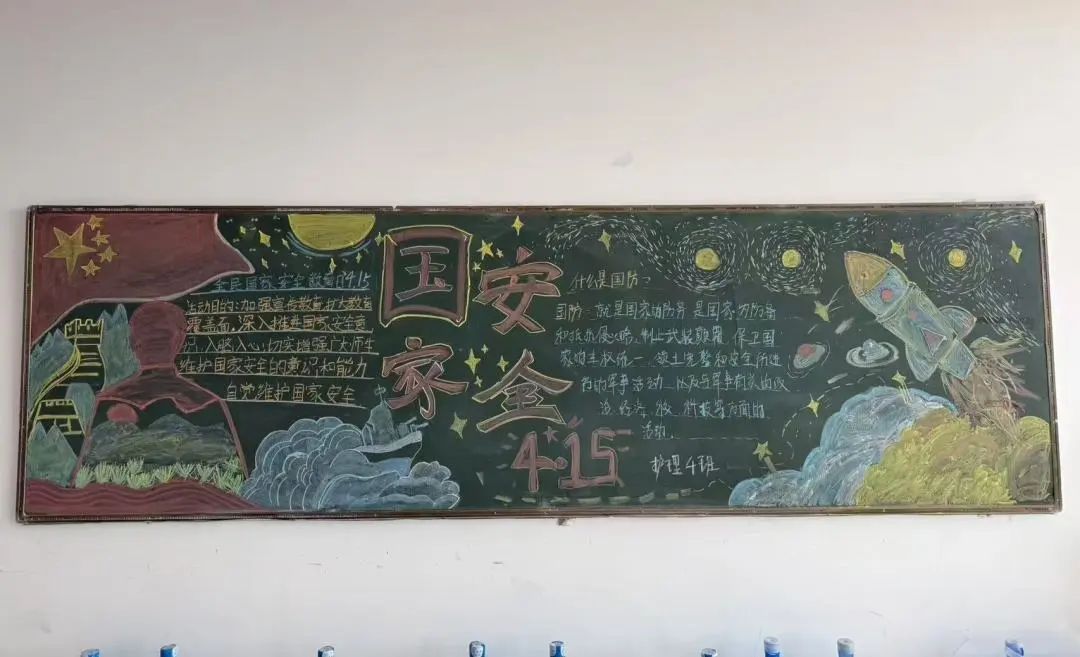 全民国家安全教育日4.15
活动目的:加强宣传教育,扩大教育
覆盖面,深入推进国家安全意
识入脑入心,切实增强广大师生
维护国家安全的意识和能力
自觉维护国家安全
国家
安全
4·15
什么是国防?
国防 就是国家的防务 是国家 为防备
和抵抗侵略,制止武装颠覆 保卫国
家的主权统一 领土完整和安全所进
行的军事活动 以及与军事有关的政
治 经济 科技等方面的
活动.
护理4班